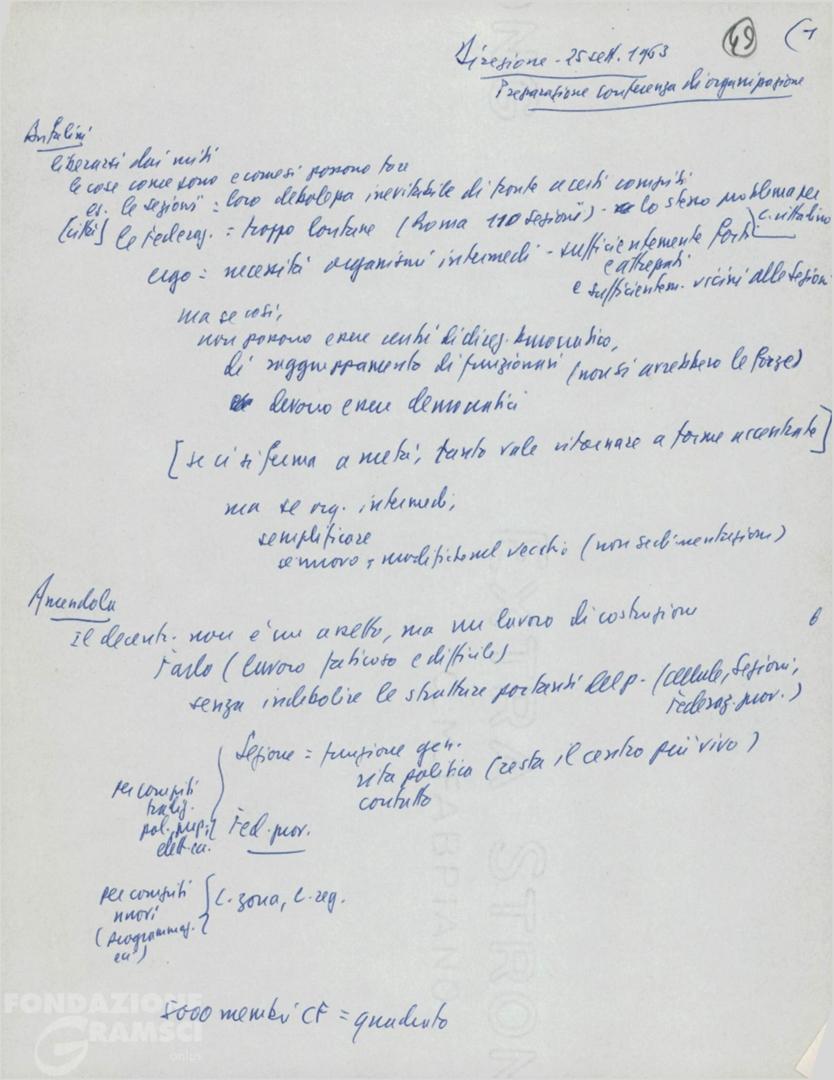 49 (1
Direzione - 25 sett. 1963
Preparazione conferenza di organizzazione
Bufalini
liberarsi dai miti
le cose come sono e come si possono fare
es. le sezioni = loro debolezza inevitabile di fronte a certi compiti
(città) le Federaz. = troppo lontane (Roma 110 sezioni) - lo stesso problema per C. cittadino
ergo = necessità organismi intermedi - sufficientemente forti
e attrezzati
e sufficientem. vicini alle sezioni
ma se così,
non possono essere centri di direz. burocratico,
di raggruppamento di funzionari (non si avrebbero le forze)
devono essere democratici
[se ci si ferma a metà, tanto vale ritornare a forme accentrate]
ma se org. intermedi,
semplificare
se nuovo, modifiche nel vecchio (non sedimentazioni)
Amendola
Il decentr. non è un assetto, ma un lavoro di costruzione
Farlo (lavoro faticoso e difficile)
senza indebolire le strutture portanti del p. (cellule, sezioni,
Federaz. prov.)
Sezione = funzione gen.
vita politica (resta il centro più vivo)
contatto
per compiti
tradiz.
pol., prop.,
elett. ecc.
Fed. prov.
per compiti
nuovi
(programmaz.
ecc.)
C. zona, C. reg.
5000 membri CF = quadrato
FONDAZIONE
GRAMSCI
onlus
EXTRA STRONG
FABRIANO